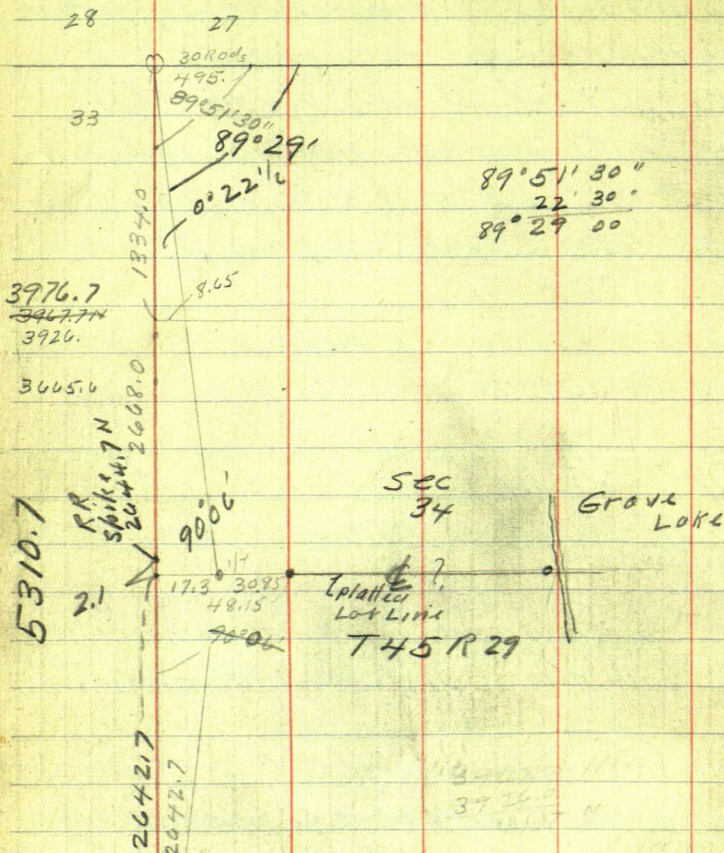 28 27
30 Rods
495.
89°51'30"
33
89°29'
0°22'½
89°51' 30"
22' 30"
89° 29 00
1334.0
8.65
3976.7
3967.7N
3926.
2668.0
RR
Spike
2644.7N
90°06'
Sec
34
Grove
Lake
5310.7
2.1
17.3 30.85
48.15
90°06'
platted
Lot Line
℄ ?
T45 R 29
2642.7
2642.7